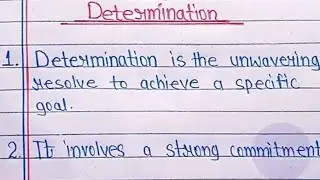 Determination
1. Determination is the unwavering
resolve to achieve a specific
goal.
2. It involves a strong commitment